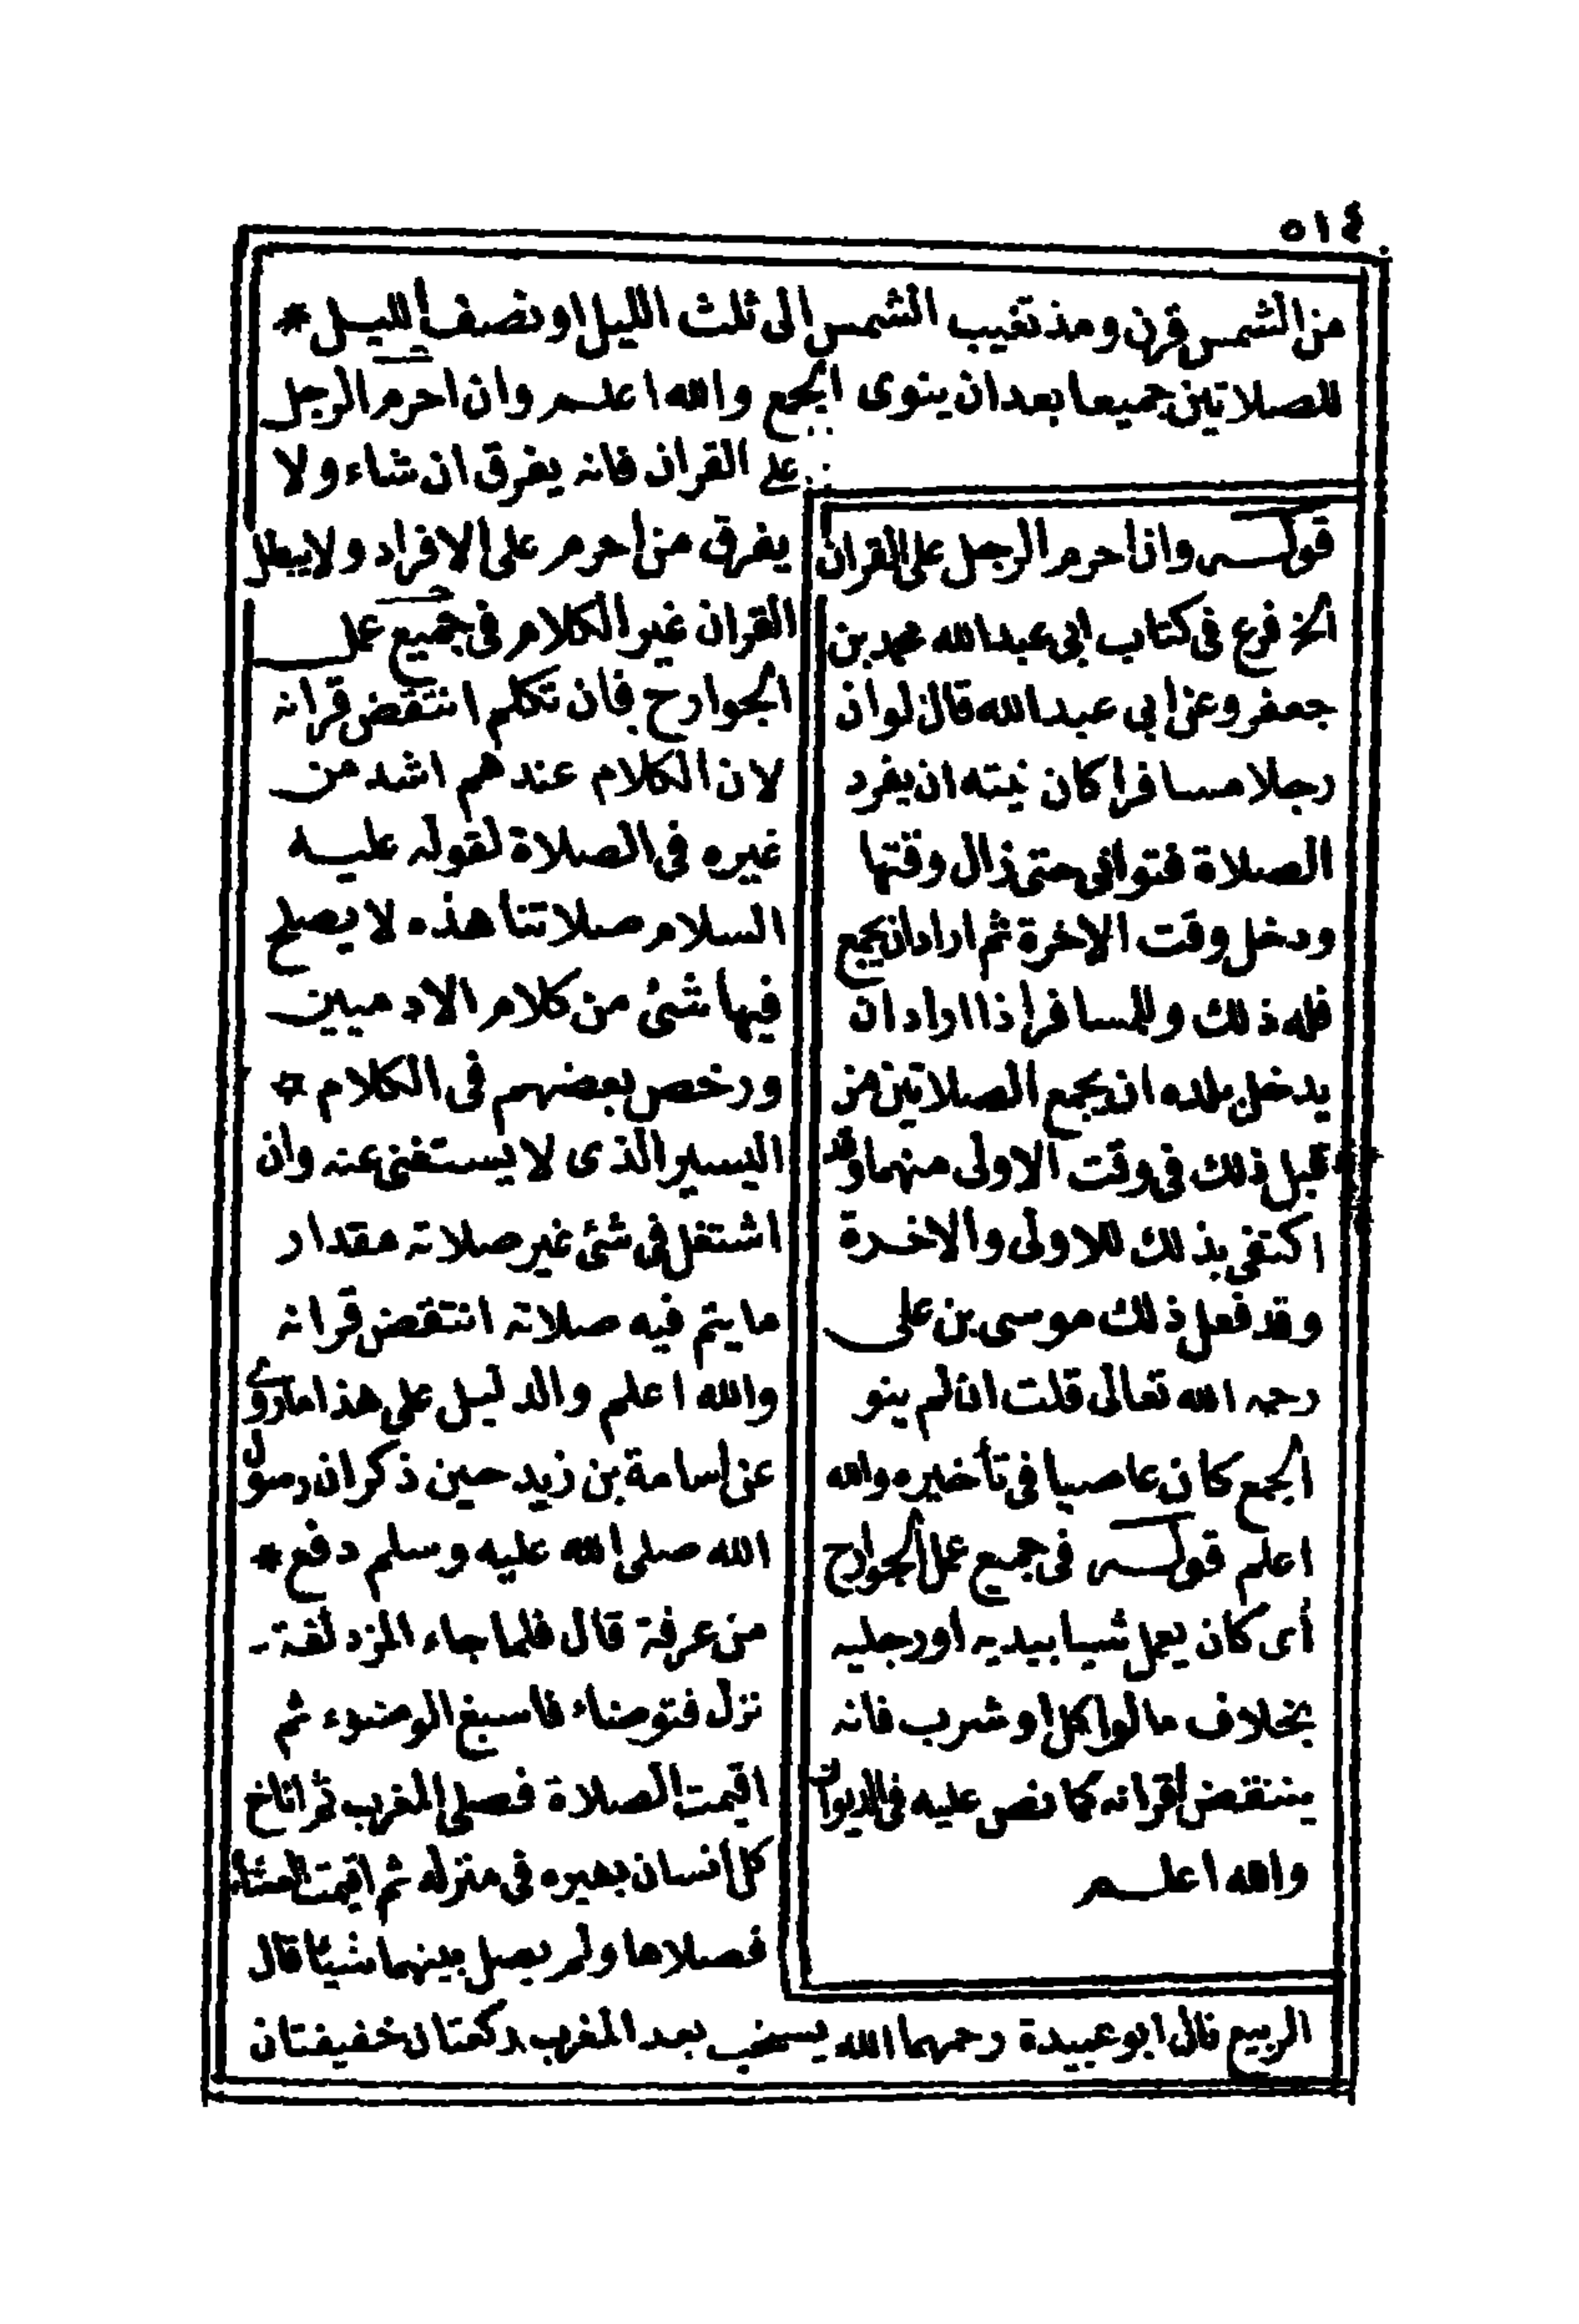 ٥١٤
من الشمس قرن ومذ تغيب الشمس الى ثلث الليل او نصف الليل *
للصلاتين جميعا بعد ان ينوى الجمع والله اعلم وان احرم الرجل
على القران فانه يفرق ان شاء ولا
يفرق من احرم على الافراد ولا يبطل
القران غير الكلام فى جميع عمل
الجوارح فان تكلم انتقض قرانه
لان الكلام عندهم اشد من
غيره فى الصلاة لقوله عليه
السلام صلاتنا هذه لا يصلح
فيها شئ من كلام الادميين
ورخص بعضهم فى الكلام
اليسير الذى لا يستغنى عنه وان
اشتغل فى شئ غير صلاته مقدار
ما يتم فيه صلاته انتقض قرانه
والله اعلم والدليل على هذا ما روى
عن اسامة بن زيد حين ذكر ان رسول
الله صلى الله عليه وسلم دفع *
من عرفة قال فلما جاء المزدلفة
نزل فتوضاء فاسبغ الوضوء ثم
اقيمت الصلاة فصلى المغرب ثم اناخ
كل انسان بعيره فى منزله ثم اقيمت العشاء
فصلاها ولم يصل بينهما شيئا قال
الربيع قال ابو عبيدة رحمهما الله يستحب بعد المغرب ركعتان خفيفتان
قوله وان احرم الرجل على القران
الخ فرع فى كتاب ابى عبد الله محمد بن
جعفر وعن ابي عبد الله قال لو ان
رجلا مسافرا كان نيته ان يفرد
الصلاة فتوانى حتى زال وقتها
ودخل وقت الاخرة ثم اراد ان يجمع
فله ذلك وللمسافر اذا اراد ان
يدخل بلده ان يجمع الصلاتين من
قبل ذلك فى وقت الاولى منهما وقد
اكتفى بذلك للاولى والاخرة
وقد فعل ذلك موسى بن على
رحمه الله تعالى قلت ان لم ينو
الجمع كان عاصيا فى تأخيره والله
اعلم قوله فى جميع عمل الجوارح
أى كان يعمل شيا بيديه أو رجليه
بخلاف ما لو اكل او شرب فانه
ينتقض اقرانه كما نص عليه فى الديوان
والله اعلم